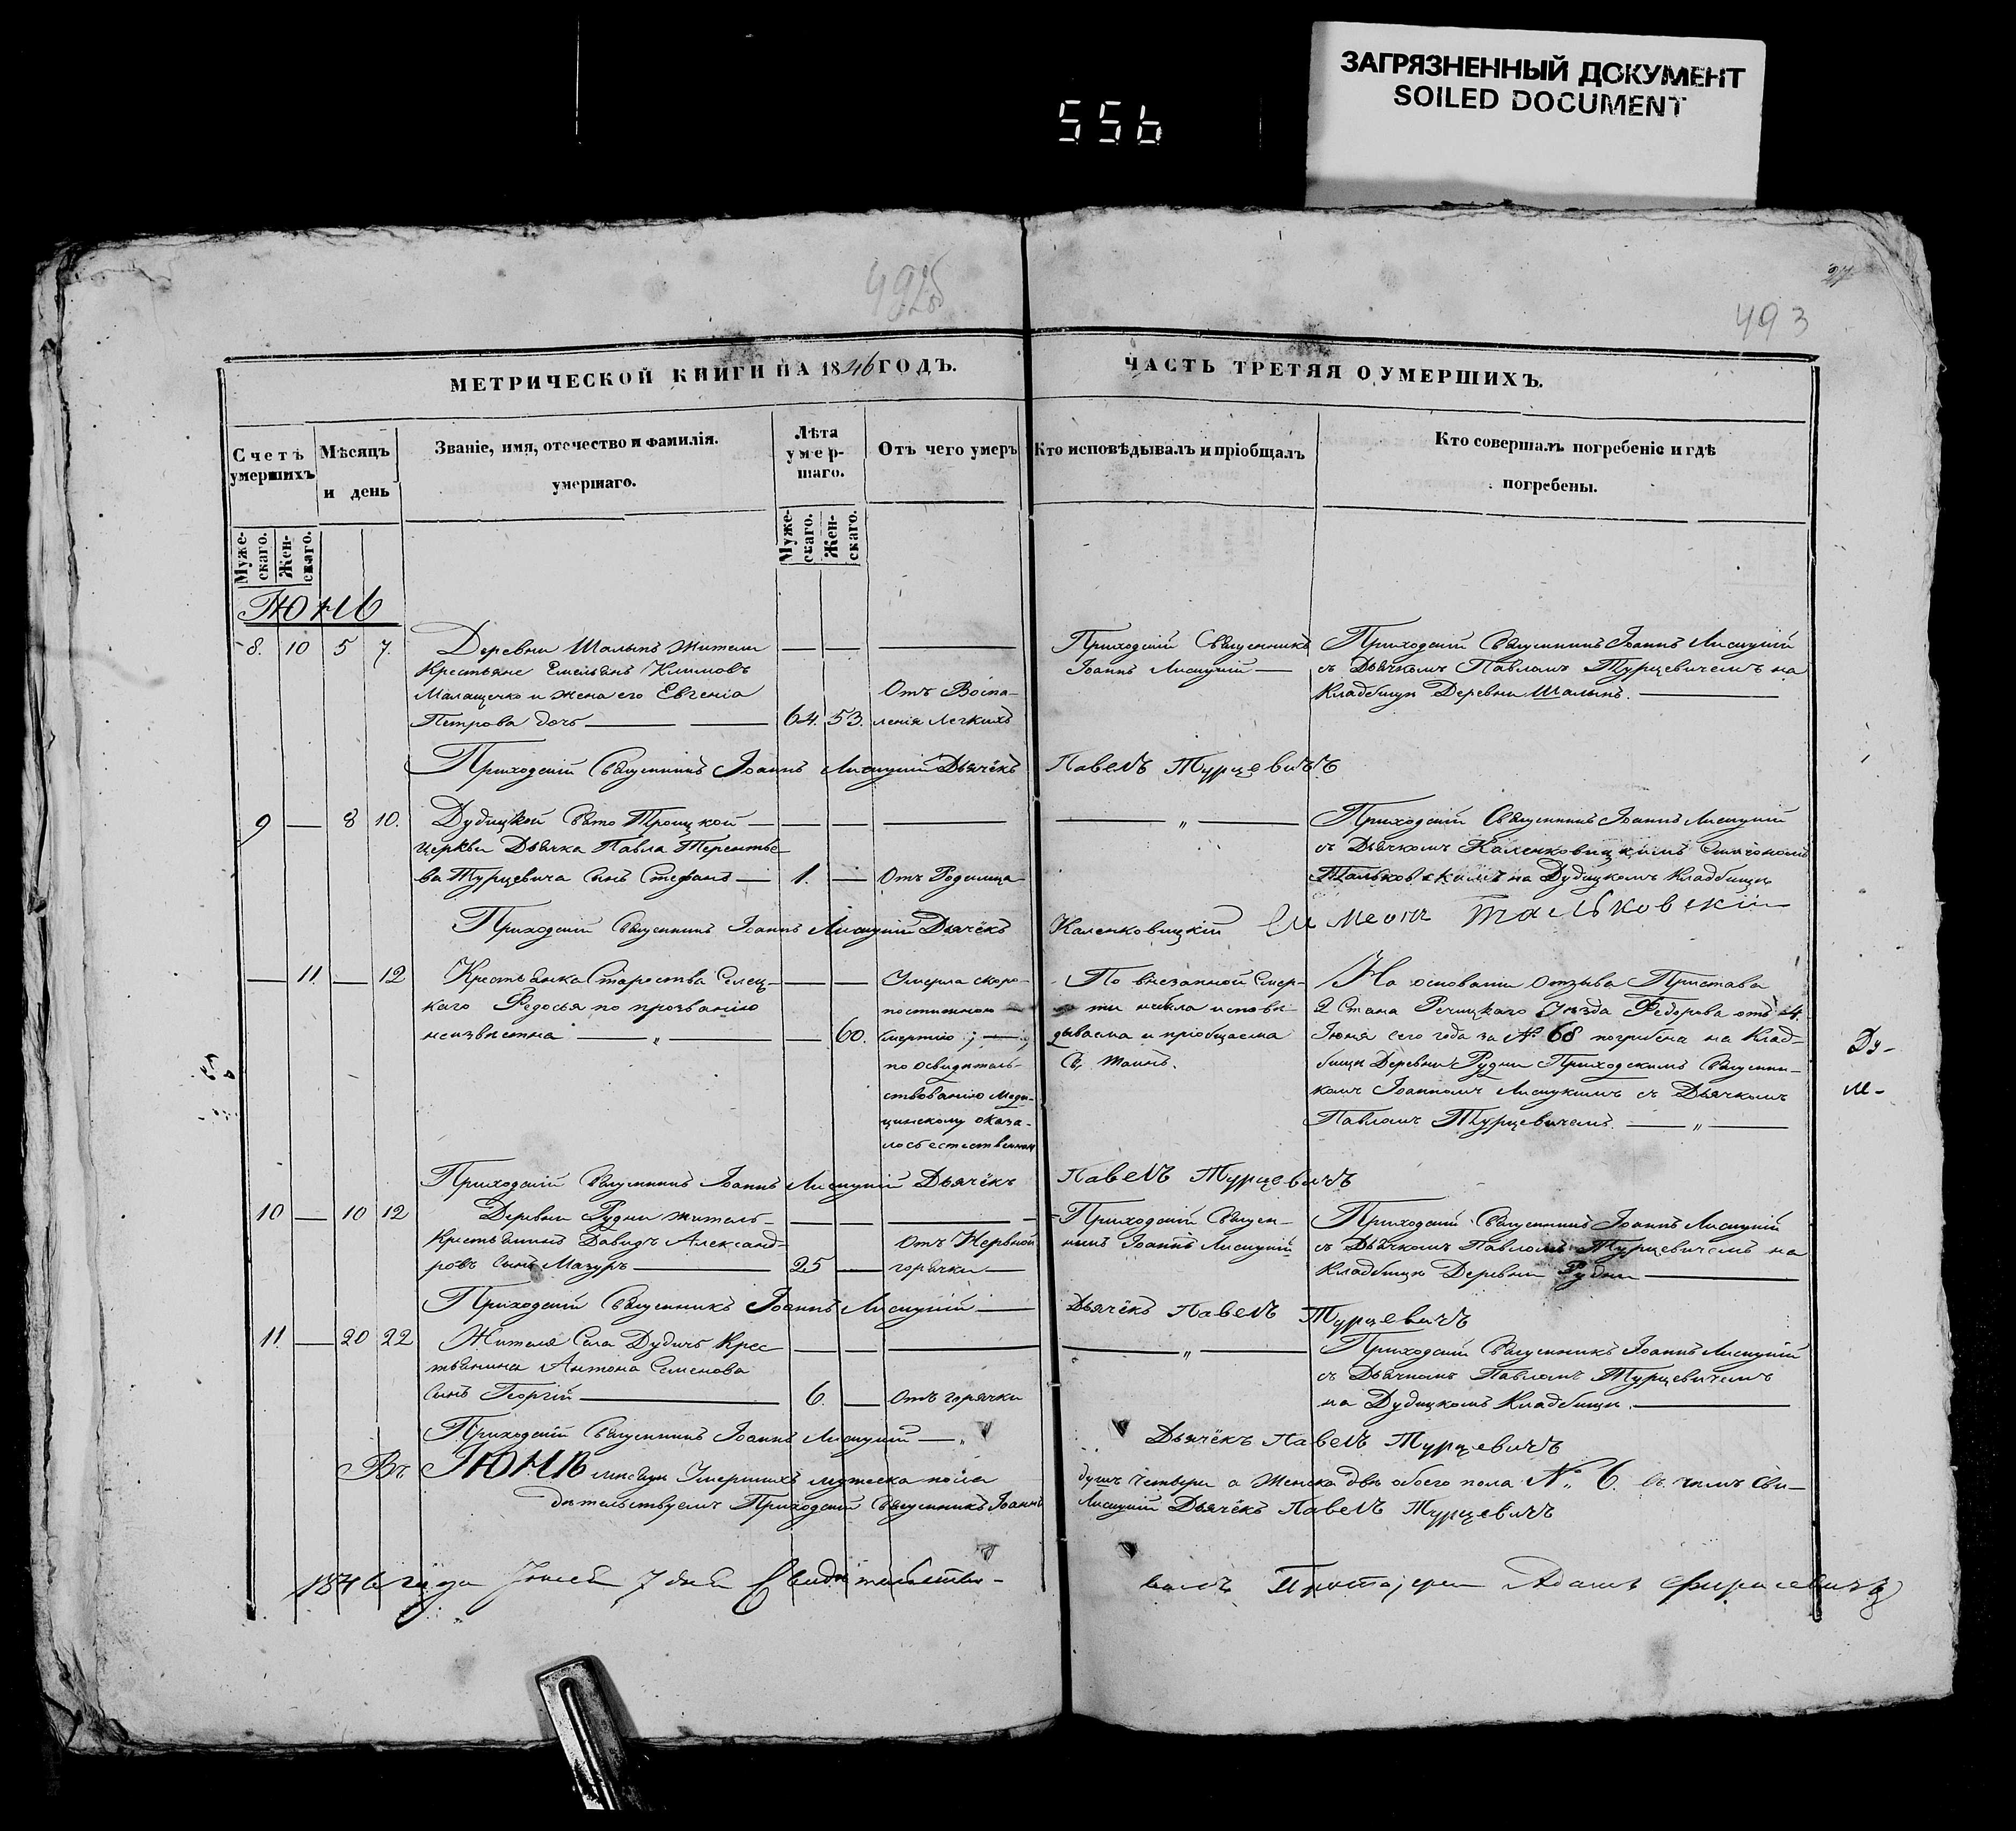 ЗАГРЯЗНЕННЫЙ ДОКУМЕНТ
SOILED DOCUMENT
556
492об
27
493
МЕТРИЧЕСКОЙ КНИГИ НА 1846 ГОДЪ.
ЧАСТЬ ТРЕТЯЯ О УМЕРШИХЪ.
Счетъ умершихъ
Мѣсяцъ и день
Званіе, имя, отечество и фамилія.
умершаго.
Лѣта умер-шаго.
Отъ чего умеръ
Кто исповѣдывалъ и пріобщалъ
Кто совершалъ погребеніе и гдѣ
погребены.
Муже-скаго.
Жен-скаго.
Муже-скаго.
Жен-скаго.
Іюнь
8. 10 5 7.
Деревни Шалыпъ жители
Крестьяне Емельянъ Климовъ
Малащенко и жена его Евгенія
Петрова дочь 64. 53.
Отъ Воспа-
ленія легкихъ
Приходскій Священникъ
Іоаннъ Лисицкій
Приходскій Священникъ Іоаннъ Лисицкій
съ Дьячкомъ Павломъ Турцевичемъ на
Кладбищѣ Деревни Шалыпъ.
Приходскій Священникъ Іоаннъ Лисицкій Дьячёкъ Павелъ Турцевичъ
9 — 8 10.
Дудицкой Свято Троицкой
Церкви Дьячка Павла Терентье
ва Турцевича сынъ Стефанъ 1. —
Отъ Родимца
Приходскій Священникъ Іоаннъ Лисицкій
съ Дьячкомъ Каленковицкимъ Симеономъ
Тальковскимъ на Дудицкомъ Кладбищѣ
Приходскій Священникъ Іоаннъ Лисицкій Дьячёкъ Каленковицкій Симеонъ Тальковскій
— 11. — 12
Крестьянка Староства Селец-
каго Федосья по прозванію
неизвѣстна — 60.
Умерла скоро-
постижною
смертію;
по освидѣтель-
ствованію меди-
цинскому оказа-
лось естественною
По внезапной смер-
ти небыла исповѣ
дываема и пріобщаема
Св. Таинъ.
На основаніи отзыва Пристава
2 Стана Речицкаго Уѣзда Федорова отъ 4.
Іюня сего года за № 68 погребена на Клад-
бищѣ Деревни Рудни Приходскимъ Священни-
комъ Іоанномъ Лисицкимъ съ Дьячкомъ
Павломъ Турцевичемъ.
Ду-
м-
Приходскій Священникъ Іоаннъ Лисицкій Дьячёкъ Павелъ Турцевичъ
10 — 10 12
Деревни Рудни житель
Крестьянинъ Давидъ Александ-
ровъ сынъ Мазуръ 25 —
Отъ Нервной
горячки
Приходскій Священ-
никъ Іоаннъ Лисицкій
Приходскій Священникъ Іоаннъ Лисицкій
съ Дьячкомъ Павломъ Турцевичемъ на
Кладбищѣ Деревни Рудни
Приходскій Священникъ Іоаннъ Лисицкій Дьячёкъ Павелъ Турцевичъ
11. — 20 22
Жителя Села Дудичъ Крес
тьянина Антона Семенова
сынъ Георгій 6. —
Отъ горячки
Приходскій Священникъ Іоаннъ Лисицкій
съ Дьячкомъ Павломъ Турцевичемъ
на Дудицкомъ Кладбищѣ.
Приходскій Священникъ Іоаннъ Лисицкій Дьячёкъ Павелъ Турцевичъ
Въ Іюнѣ мѣсяцѣ Умершихъ мужеска пола душъ четверы а Женска двѣ обоего пола №. 6. въ чемъ сви-
дѣтельствуемъ Приходскій Священникъ Іоаннъ Лисицкій Дьячёкъ Павелъ Турцевичъ
1846 года Іюлей 7 дня Свидѣтельство-
валъ Протоіерей Адамъ